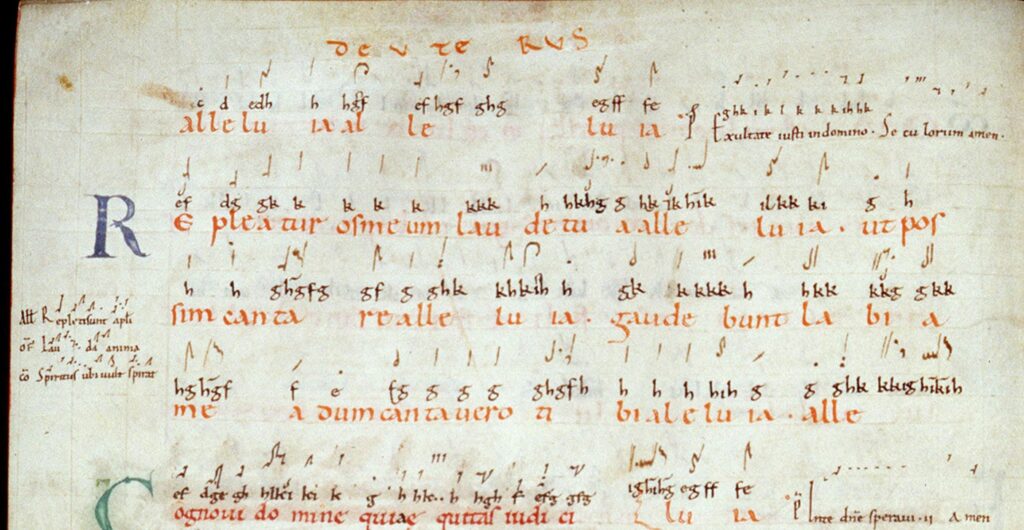 DEUTERUS
c d edh h hgf ef hgf ghg egff fe ghk k k l k k kihhk
alle lu ia al le lu ia P Exultate iusti in domino. Se cu lorum amen.
ef dg gk k k k k kkk h hkhg g hk ik hik ilkk ki g h
REpleatur os meum lau de tu a alle lu ia. ut pos
h h ghgfg gf g ghk khkih h gk k kkk h hkk kkg gkk
sim canta re alle lu ia. gaude bunt la bi a
All Repleti sunt apli
of Lau da anima
co Spiritus ubi uult spirat
hghgf f e fg g g g ghgfh h h h hih g g ghk kkighkih
me a dum canta uero ti bi ale lu ia. alle
ef dge gh hlki ki k g h hk h hgh f efg gfg ighihg egff fe
Cognoui do mine quiae quitas iudi ci lu ia P In te dne speraui. ii Amen